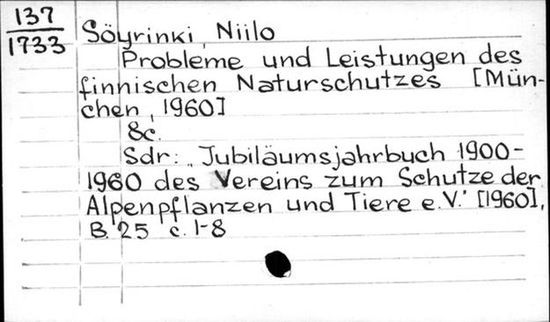 137
1733
Söyrinki, Niilo
Probleme und Leistungen des
finnischen Naturschutzes [Mün-
chen, 1960]
8c.
Sdr: „Jubiläumsjahrbuch 1900-
1960 des Vereins zum Schutze der
Alpenpflanzen und Tiere e.V." [1960],
B. 25 c. 1-8